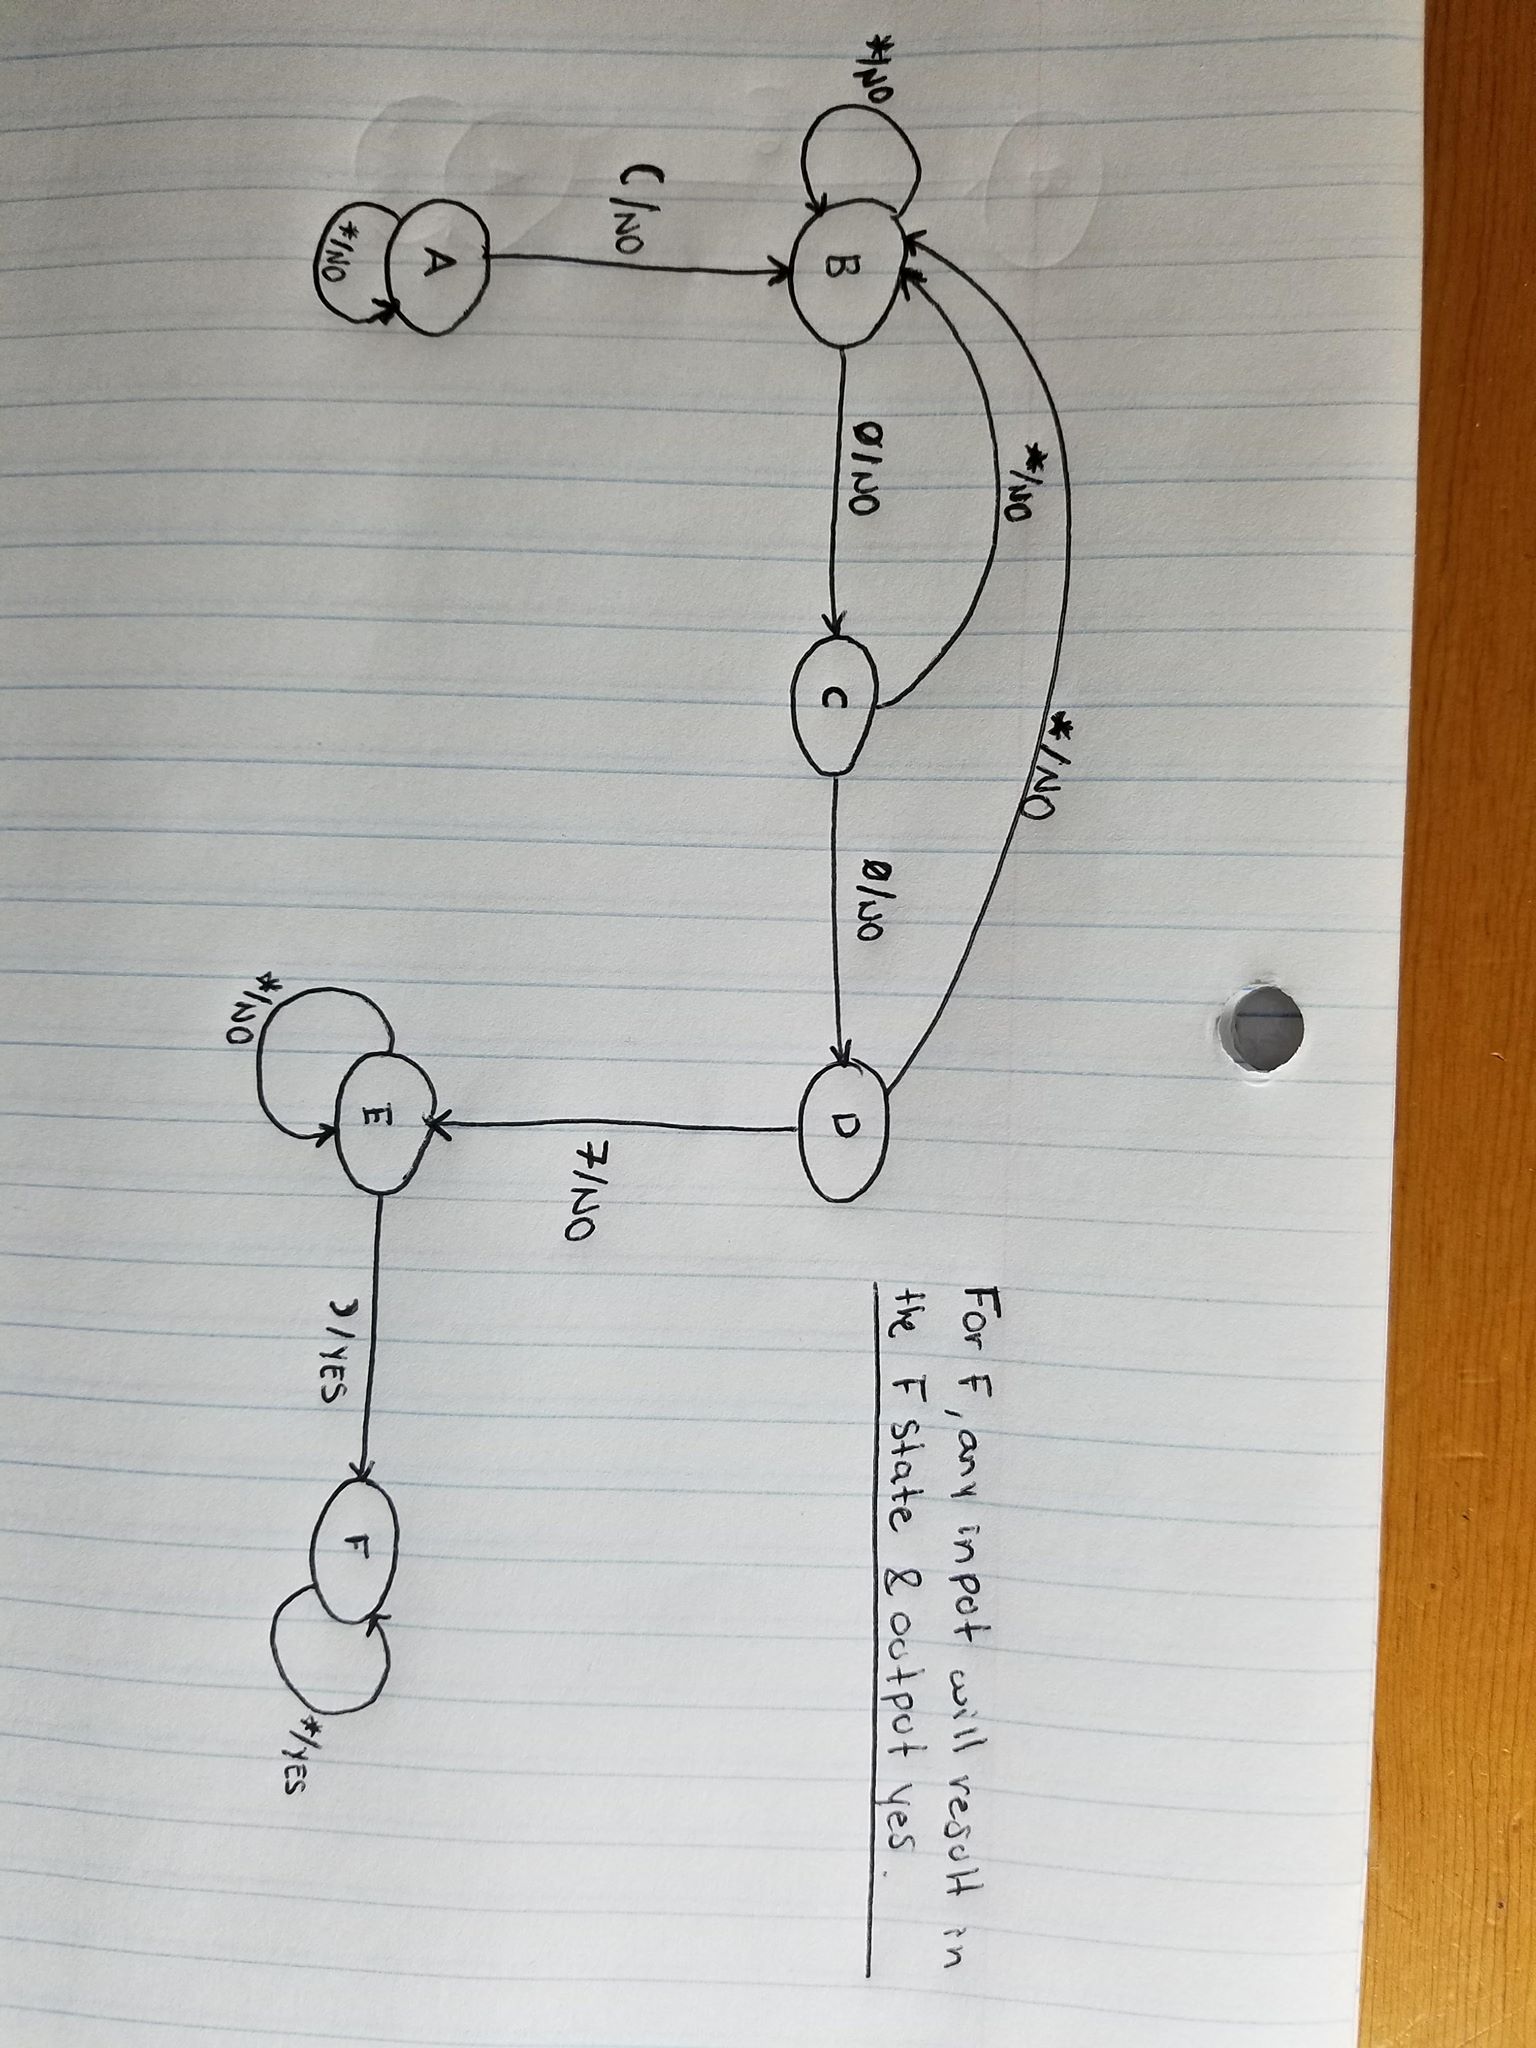 */NO
*/NO
For F, any input will result in
the F state & output yes.
*/NO
B
Ø/NO
C
Ø/NO
D
(/NO
7/NO
A
*/NO
E
)/YES
F
*/YES
*/NO